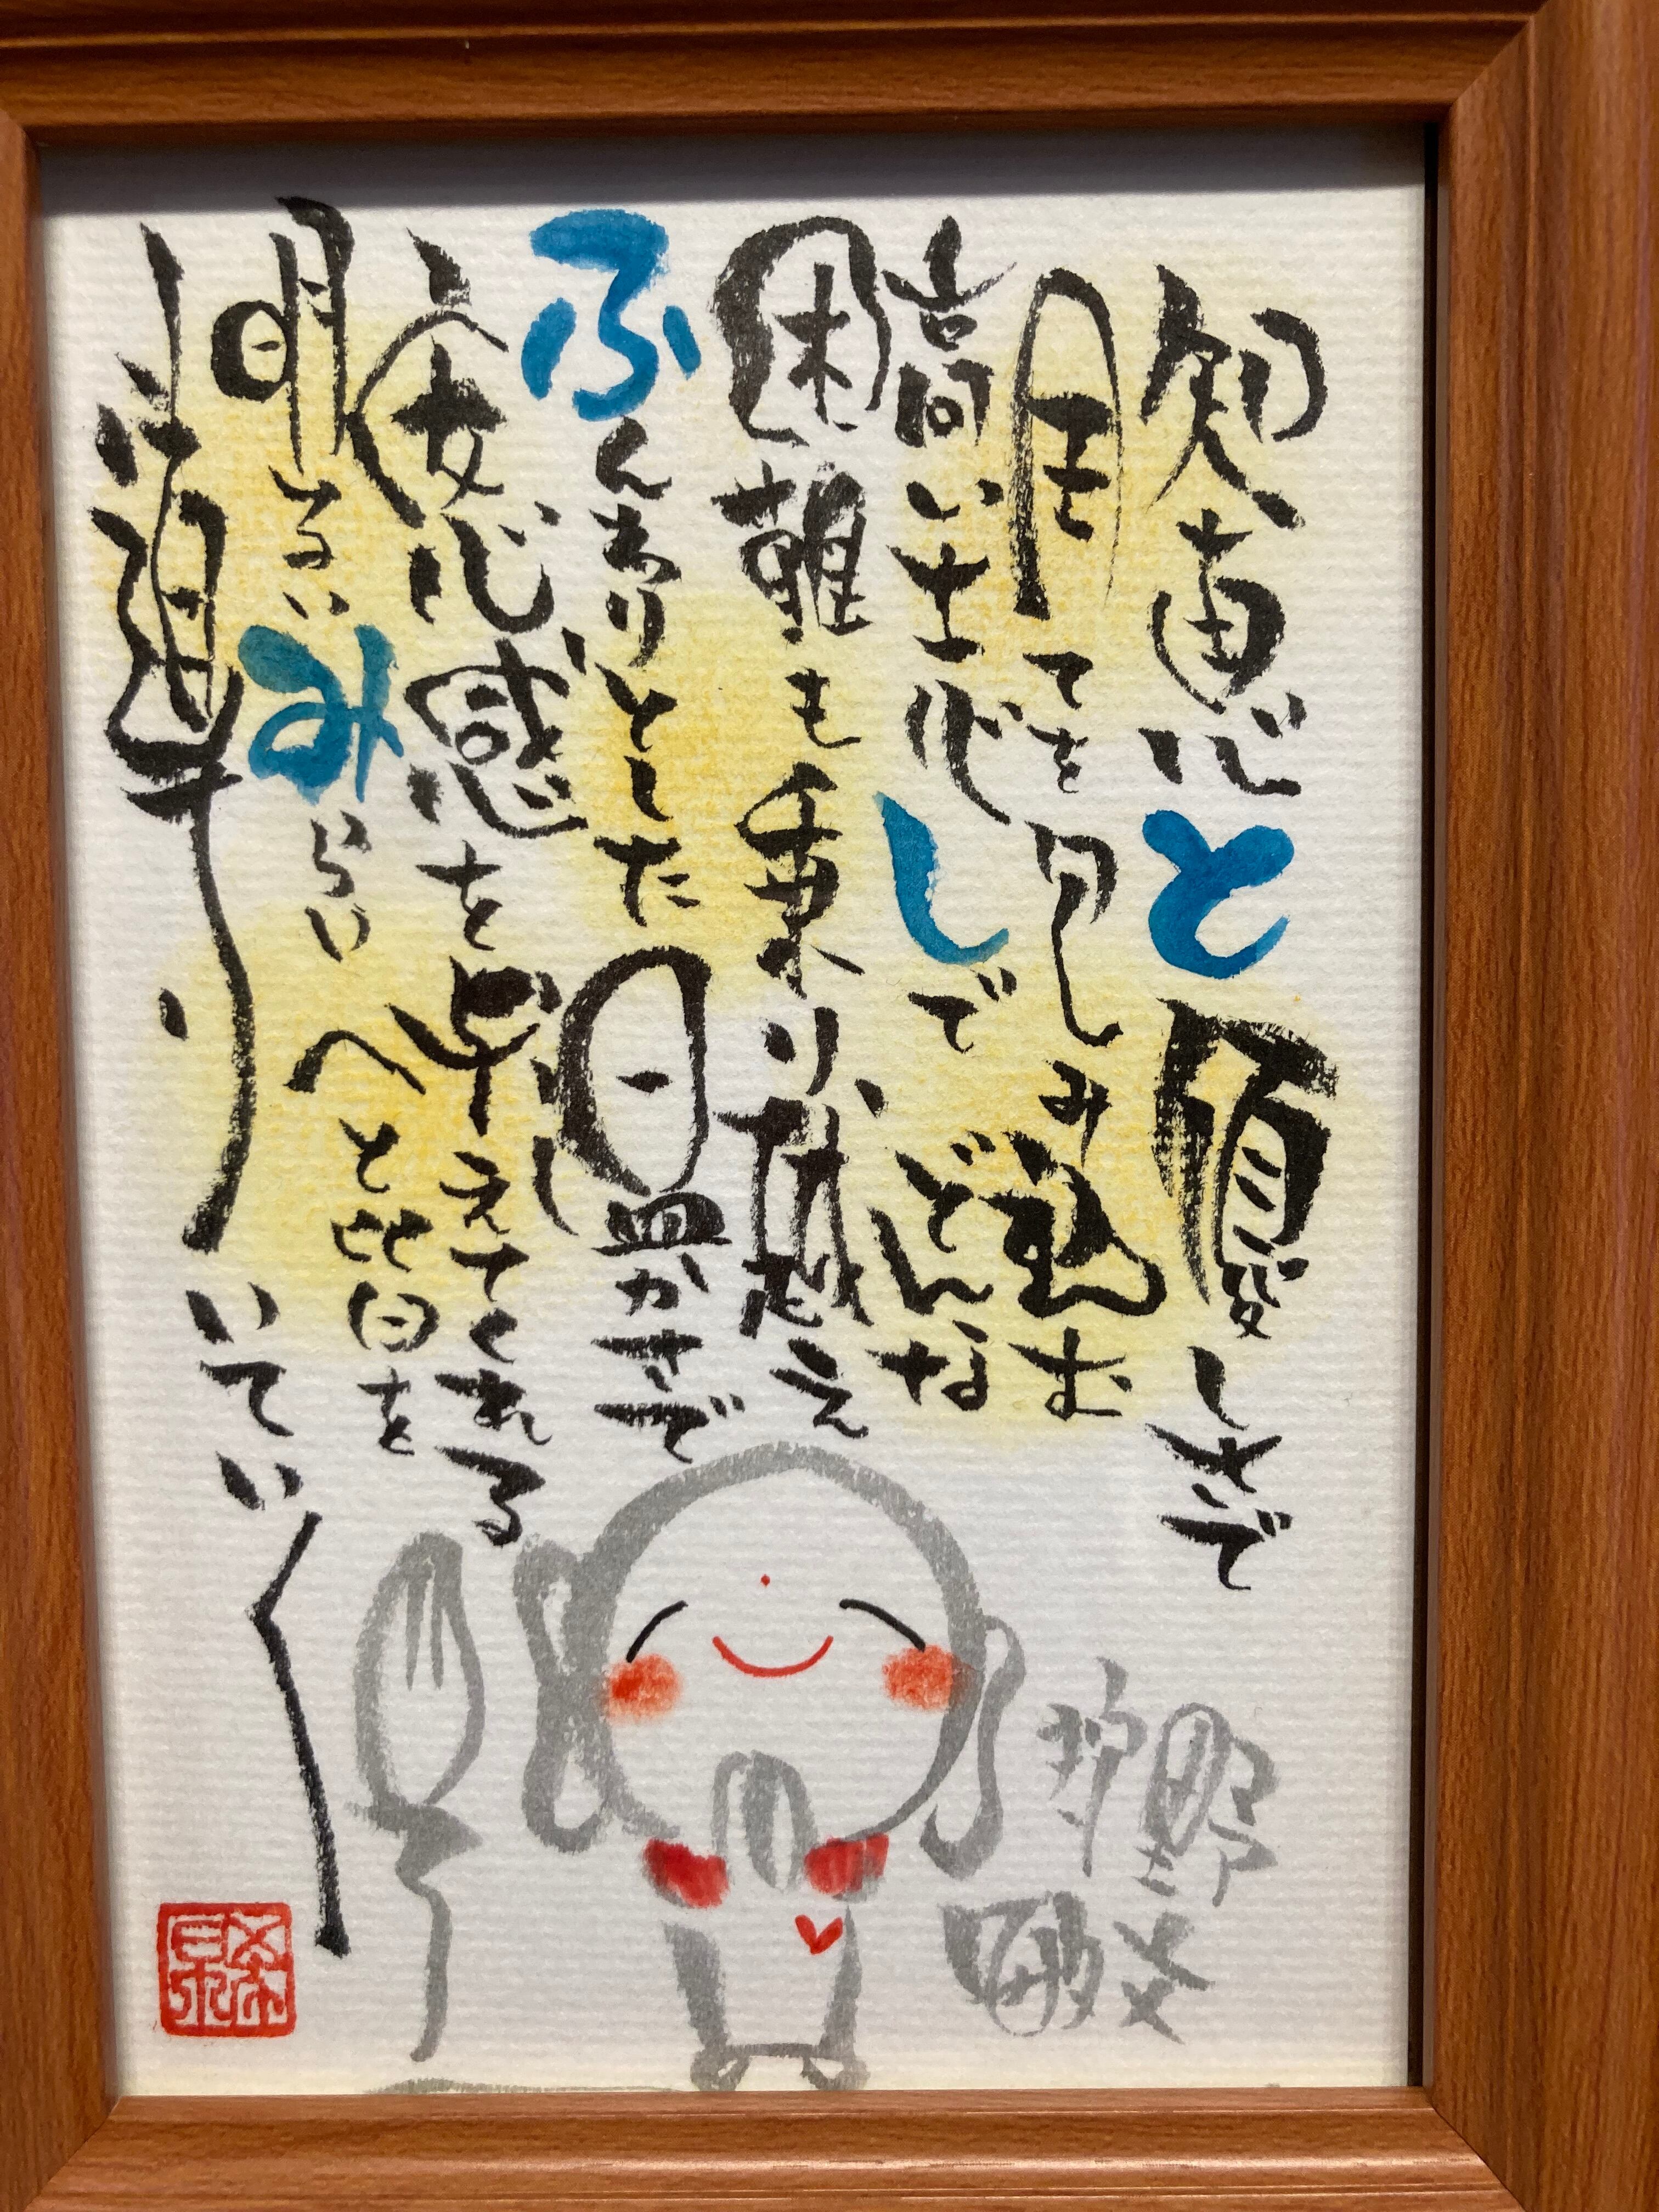 知恵と優しさで
全てを包み込む
高い志しでどんな
困難も乗り越え
ふんわりとした温かさで
安心感を与えてくれる
明るいみらいへと皆を
導いていく
野
敏文